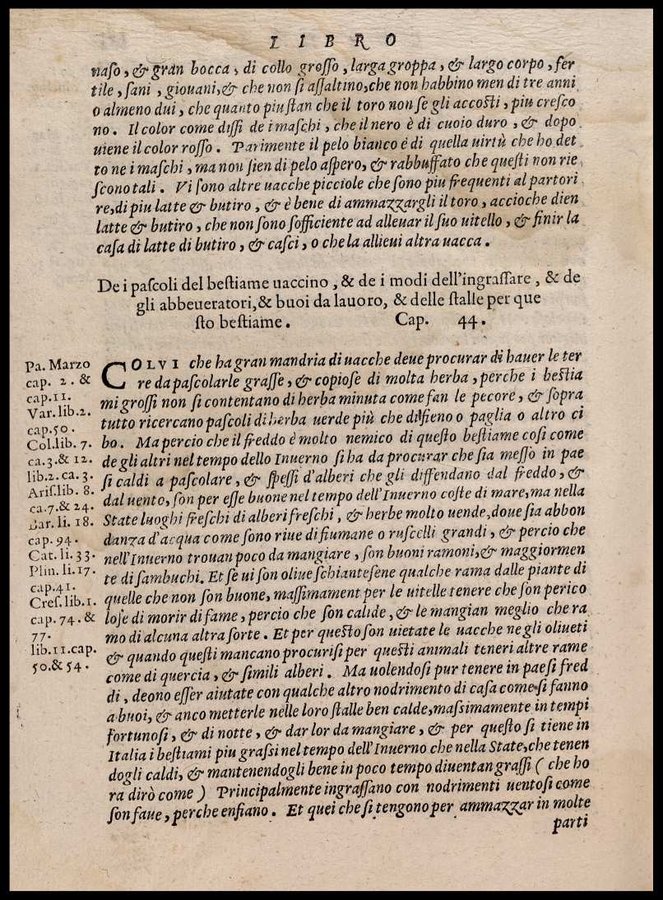 LIBRO
naso, & gran bocca, di collo grosso, larga groppa, & largo corpo, fer
tile, sani, giouani, & che non si assaltino, che non habbino men di tre anni
o almeno dui, che quanto piu stan che il toro non se gli accosti, piu cresco
no. Il color come dissi de i maschi, che il nero è di cuoio duro, & dopo
uiene il color rosso. Parimente il pelo bianco è di quella uirtù che ho det
to ne i maschi, ma non sien di pelo aspero, & rabbuffato che questi non rie
scono tali. Vi sono altre uacche picciole che sono piu frequenti al partori
re, di piu latte & butiro, & è bene di ammazzargli il toro, accioche dien
latte & butiro, che non sono sofficiente ad alleuar il suo uitello, & finir la
casa di latte di butiro, & casci, o che la allieui altra uacca.
De i pascoli del bestiame uaccino, & de i modi dell'ingrassare, & de
gli abbeueratori, & buoi da lauoro, & delle stalle per que
sto bestiame. Cap. 44.
COLVI che ha gran mandria di uacche deue procurar di hauer le ter
re da pascolarle grasse, & copiose di molta herba, perche i bestia
mi grossi non si contentano di herba minuta come fan le pecore, & sopra
tutto ricercano pascoli di herba uerde più che di fieno o paglia o altro ci
bo. Ma percio che il freddo è molto nemico di questo bestiame cosi come
de gli altri nel tempo dello Inuerno si ha da procurar che sia messo in pae
si caldi a pascolare, & spessi d'alberi che gli diffendano dal freddo, &
dal uento, son per esse buone nel tempo dell'Inuerno coste di mare, ma nella
State luoghi freschi di alberi freschi, & herbe molto uende, doue sia abbon
danza d'acqua come sono riue di fiumane o ruscelli grandi, & percio che
nell'Inuerno trouan poco da mangiare, son buoni ramoni, & maggiormen
te di sambuchi. Et se ui son oliue schiantesene qualche rama dalle piante di
quelle che non son buone, massimament per le uitelle tenere che son perico
lose di morir di fame, percio che son calide, & le mangian meglio che ra
mo di alcuna altra sorte. Et per questo son uietate le uacche ne gli oliueti
& quando questi mancano procurisi per questi animali teneri altre rame
come di quercia, & simili alberi. Ma uolendosi pur tenere in paesi fred
di, deono esser aiutate con qualche altro nodrimento di casa come si fanno
a buoi, & anco metterle nelle loro stalle ben calde, massimamente in tempi
fortunosi, & di notte, & dar lor da mangiare, & per questo si tiene in
Italia i bestiami piu grassi nel tempo dell'Inuerno che nella State, che tenen
dogli caldi, & mantenendogli bene in poco tempo diuentan grassi ( che ho
ra dirò come ) Principalmente ingrassano con nodrimenti uentosi come
son faue, perche enfiano. Et quei che si tengono per ammazzar in molte
parti
Pa. Marzo
cap. 2. &
cap. 11.
Var. lib. 2.
cap. 50.
Col. lib. 7.
ca. 3. & 12.
lib. 2. ca. 3.
Aris. lib. 8.
ca. 7. & 24.
Bar. li. 18.
cap. 94.
Cat. li. 33.
Plin. li. 17.
cap. 41.
Cres. lib. 1.
cap. 74. &
77.
lib. 11. cap.
50. & 54.